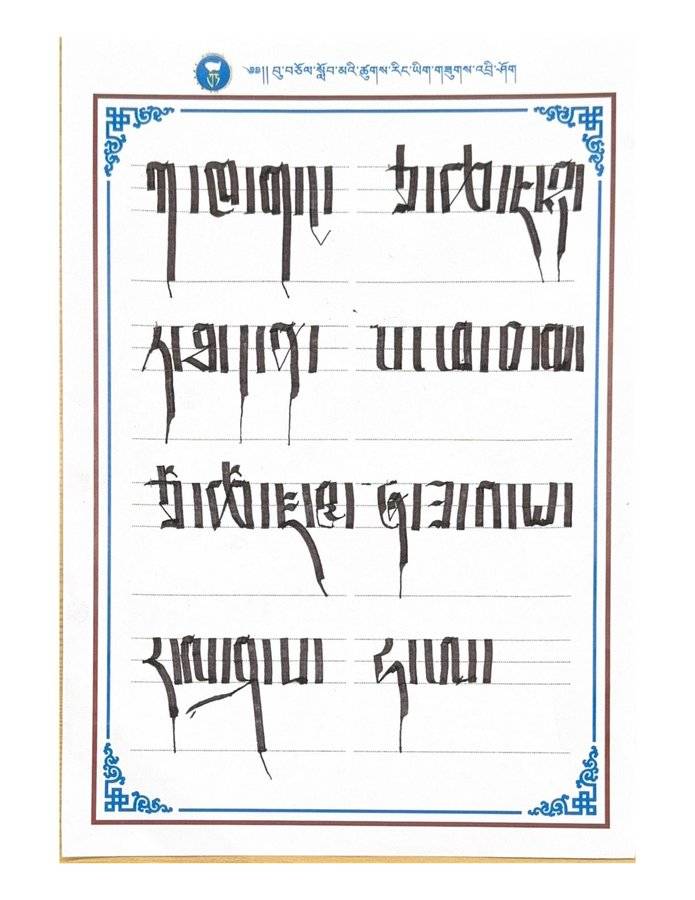 ༄༅།། བུ་བཅོལ་སློབ་མའི་ཚུགས་རིང་ཡིག་གཟུགས་འབྲི་ཤོག
ཀ།ཁ།ག།ང། ཅ།ཆ།ཇ།ཉ།
ཏ།ཐ།ད།ན། པ།ཕ།བ།མ།
ཙ།ཚ།ཛ།ཝ། ཞ།ཟ།འ།ཡ།
ར།ལ།ཤ།ས། ཧ།ཨ།